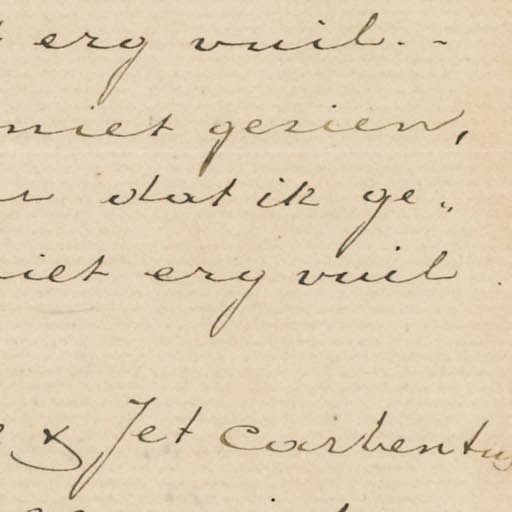 erg vuil. -
niet gezien,
dat ik ge„
niet erg vuil.
& Jet Carbentus